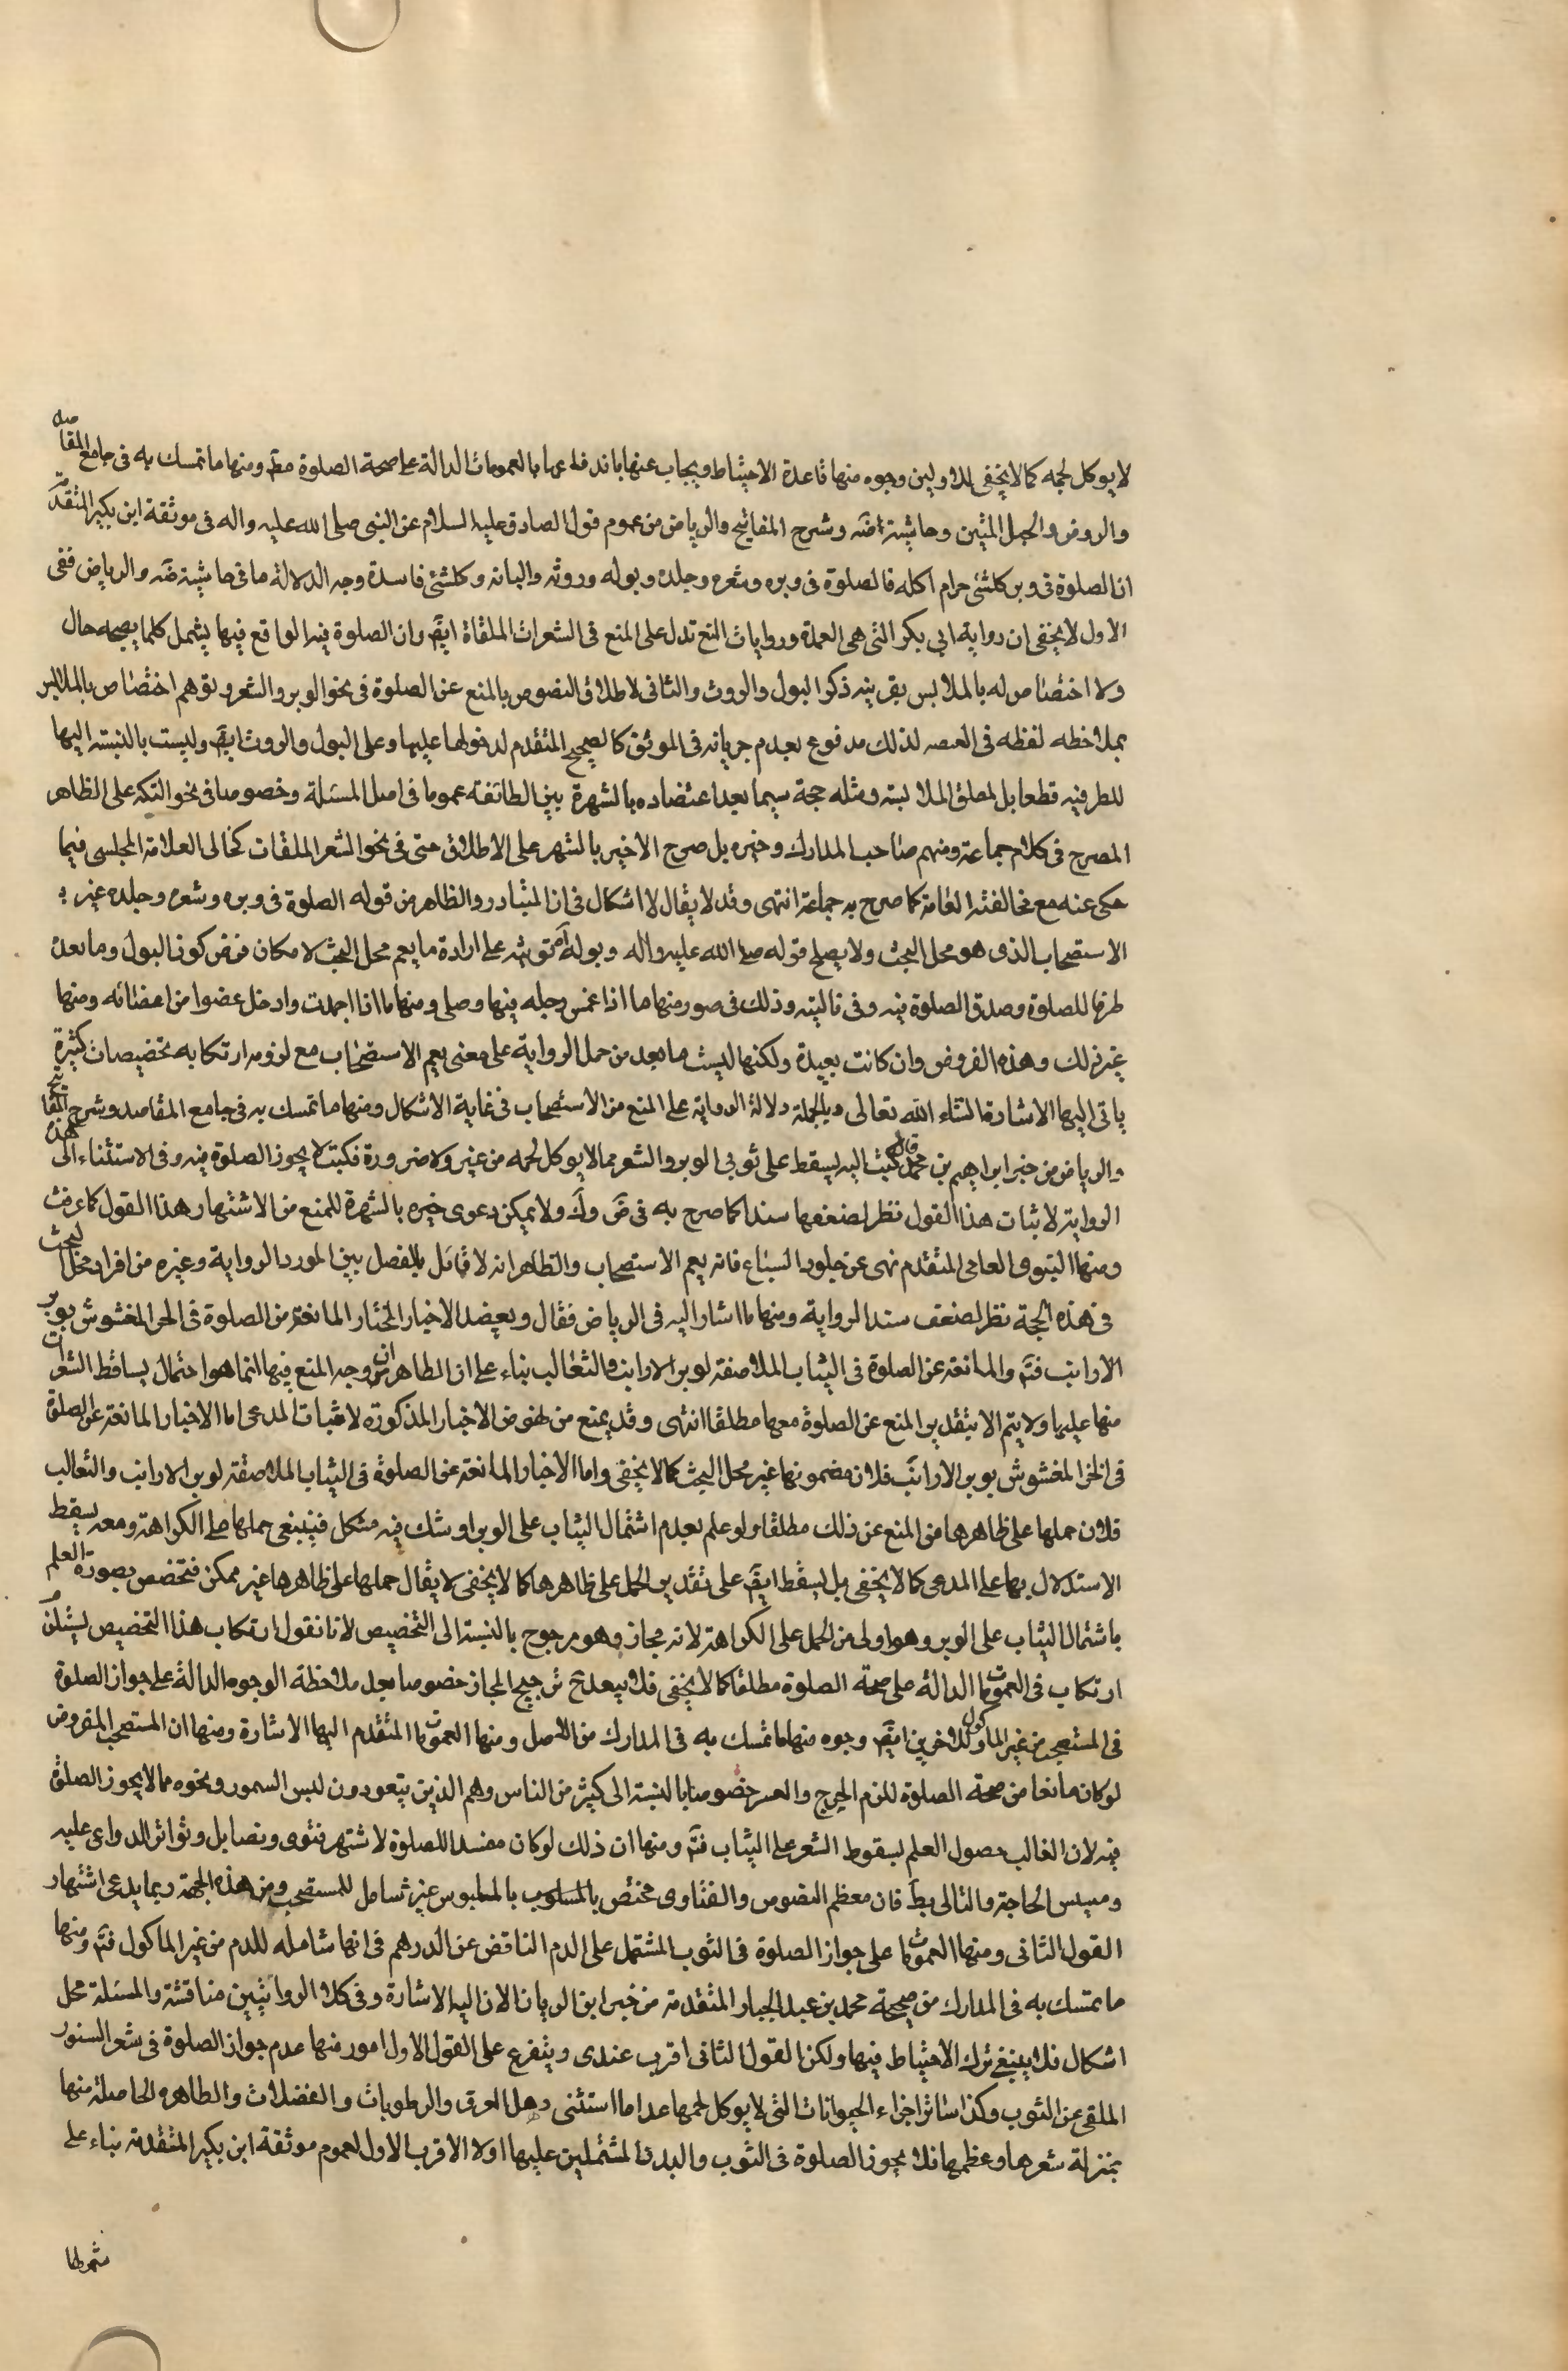 لا يوكل لحمه كما لا يخفى للاولين وجوه منها قاعدة الاحتياط ويجاب عنها باندفاعها بالعمومات الدالة على صحة الصلوة مط ومنها ما تمسك به فى جامع المقاصد
والروض والحبل المتين وحاشية ضه وشرح المفاتيح والرياض من عموم قول الصادق عليه السلام عن النبى صلى الله عليه واله فى موثقة ابن بكير المتقدمة
ان الصلوة فى وبر كلشئ حرام اكله فالصلوة فى وبره وشعره وجلده وبوله وروثه والبانه وكلشئ فاسدة وجه الدلالة ما فى حاشية ضه والرياض ففى
الاول لا يخفى ان رواية ابي بكر التى هى العمدة وروايات المنع تدل على المنع فى الشعرات الملقاة ايض وان الصلوة فيه الواقع فيها يشمل كلما يصحبه حال
ولا اختصاص له بالملابس بقرينه ذكر البول والروث والثانى لاطلاق النصوص بالمنع عن الصلوة فى نحو الوبر والشعر وتوهم اختصاص بالملابس
بملاحظه لفظه فى العصه لذلك مدفوع بعدم جريانه فى الموثق كالصحيح المتقدم لدخولها عليها وعلى البول والروث ايض وليست بالنسبة اليها
للظرفيه قطعا بل لمطلق الملابسة ومثله حجة سيما بعد اعتضاده بالشهرة بين الطائفة عموما فى اصل المسئلة وخصوصا فى نحو التكه على الظاهر
المصرح فى كلام جماعة ومنهم صاحب المدارك وخيره بل صرح الاخير بالشهر على الاطلاق حتى فى نحو الشعر الملقات كخالى العلامة المجلسى فيما
حكى عنه مع مخالفته العامة كما صرح به جماعة انتهى وقد لا يقال لا اشكال فى ان المتبادر والظاهر من قوله الصلوة فى وبره وشعره وجلده غير
الاستصحاب الذى هو محل البحث ولا يصلح قوله صلى الله عليه واله وبوله وروثه على ارادة ما يعم محل البحث لامكان فرض كون البول وما بعده
ظرفا للصلوة وصدق الصلوة فيه وفى تاليته وذلك فى صور منها ما اذا غمس رجله فيها وصلى ومنها ما اذا اجمدت وادخل عضوا من اعضائه ومنها
غير ذلك وهذه الفروض وان كانت بعيدة ولكنها ليست ما بعد من حمل الرواية على معنى يعم الاستصحاب مع لزومه ارتكابه تخصيصات كثيرة
ياتى اليها الاشارة انشاء الله تعالى وبالجملة دلالة الرواية على المنع من الاستصحاب فى غاية الاشكال ومنها ما تمسك به فى جامع المقاصد وشرح المفاتيح
والرياض من خبر ابراهيم بن محمد قال كتبت اليه يسقط على ثوبى الوبر والشعر مما لا يوكل لحمه من غير ولا ضرورة فكتب لا يجوز الصلوة فيه وفى الاستثناء الى هذه
الرواية لاثبات هذا القول نظر لضعفها سندا كما صرح به فى ض وك ولا يمكن دعوى خبره بالشهرة للمنع من الاشتهار هذا القول كما عرفت
ومنها النبوى العامى المتقدم نهى عن جلود السباع فانه يعم الاستصحاب والظاهر انه لا قائل بالفصل بين المورد الرواية وغيره من افراد محل البحث
فى هذه الحجة نظر لضعف سند الرواية ومنها ما اشار اليه فى الرياض فقال ويعضد الاخبار المختار المانعة من الصلوة فى الخز المغشوش بوبر
الارانب فتم والمانعة عن الصلوة فى الثياب الملاصقة لوبر الارانب والثعالب بناء على ان الظاهر ان وجه المنع فيها انما هو احتمال يساقط الشعرات
منها عليها ولا يتم الا بتقدير المنع عن الصلوة معها مطلقا انتهى وقد يمنع من نهوض الاخبار المذكورة لاثبات المدعى اما الاخبار المانعة عن الصلوة
فى الخز المغشوش بوبر الارانب فلان مضمونها غير محل البحث كما لا يخفى واما الاخبار المانعة عن الصلوة فى الثياب الملاصقة لوبر الارانب والثعالب
فلان حملها على ظاهرها من المنع عن ذلك مطلقا ولو علم بعدم اشتمال الثياب على الوبر او شك فيه مشكل فينبغى حملها على الكراهة ومعه يسقط
الاستدلال بها على المدعى كما لا يخفى بل يسقط ايض على تقدير الحمل على ظاهرها كما لا يخفى لا يقال حملها على ظاهرها غير ممكن فتخصص بصورة العلم
باشتمال الثياب على الوبر وهو اولى من الحمل على الكراهة لانه مجاز وهو مرجوح بالنسبة الى التخصيص لانا نقول ارتكاب هذا التخصيص يستلزم
ارتكاب فى العمومات الدالة على صحة الصلوة مطلقا كما لا يخفى فلا يبعد ح ترجيح المجاز خصوصا بعد ملاحظة الوجوه الدالة على جواز الصلوة
فى المستصحب من غير الماكول للاخرين ايض وجوه منها ما تمسك به فى المدارك من الاصل ومنها العمومات المتقدم اليها الاشارة ومنها ان المستصحب المفروض
لو كان مانعا من صحة الصلوة للزم الحرج والعسر خصوصا بالنسبة الى كثير من الناس وهم الذين يتعودون لبس السمور ونحوه مما لا يجوز الصلوة
فيه لان الغالب حصول العلم بسقوط الشعر على الثياب فتم ومنها ان ذلك لو كان مفسدا للصلوة لاشتهر فتوى ونصا بل وتواتر الدواعى عليه
ومسيس الحاجة والتالى بط فان معظم النصوص والفتاوى مختص بالمسلوب بالملبوس غير شامل للمستصحب ومن هذه الجهة ربما يدعى اشتهار
القول الثانى ومنها العمومات على جواز الصلوة فى الثوب المشتمل على الدم الناقص عن الدرهم فى انها شامله للدم من غير الماكول فتم ومنها
ما تمسك به فى المدارك من صحيحة محمد بن عبد الجبار المتقدمة من خبر ابن الريان الان اليه الاشارة وفى كلا الروايتين مناقشة والمسئلة محل
اشكال فلا ينبغى ترك الاحتياط فيها ولكن القول الثانى اقرب عندى ويتفرع على القول الاول امور منها عدم جواز الصلوة فى شعر السنور
الملقى عن الثوب وكذا سائر اجزاء الحيوانات التى لا يوكل لحمها عدا ما استثنى وهل العرق والرطوبات والفضلات والطاهره الحاصلة منها
بمنزلة شعرها وعظمها فلا يجوز الصلوة فى الثوب والبدن المشتملين عليها اولا الاقرب الاول لعموم موثقة ابن بكير المتقدمة بناء على